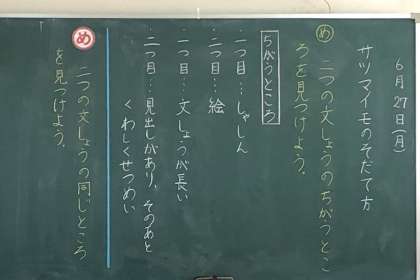 6月27日(月)
サツマイモのそだて方
め 二つの文しょうのちがうとこ
ろを見つけよう。
ちがうところ
・一つ目…しゃしん
・二つ目…絵
・一つ目…文しょうが長い
・二つ目…見出しがあり、そのあと
くわしくせつめい
め 二つの文しょうの同じところ
を見つけよう。